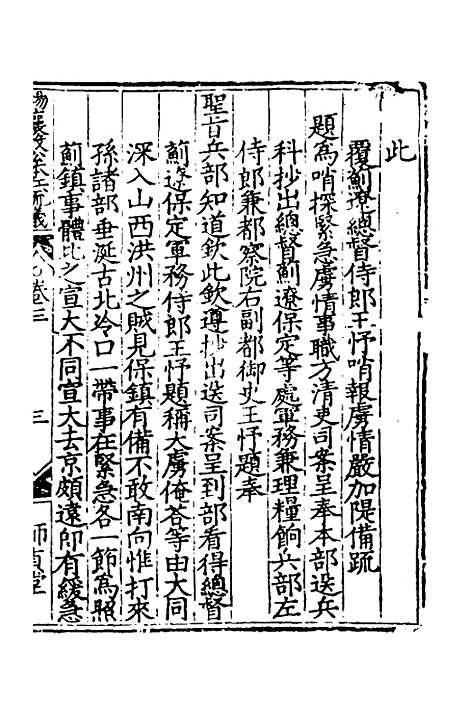 此
覆薊遼總督侍郎王忬哨報虜情嚴加隄備疏
題爲哨探緊急虜情事職方清吏司案呈奉本部送兵
科抄出總督薊遼保定等處軍務兼理糧餉兵部左
侍郎兼都察院右副都御史王忬題奉
聖旨兵部知道欽此欽遵抄出送司案呈到部看得總督
薊遼保定軍務侍郎王忬題稱大虜俺荅等由大同
深入山西洪州之賊見保鎮有備不敢南向惟打來
孫諸部垂涎古北冷口一帶事在緊急各一節爲照
薊鎮事體比之宣大不同宣大去京頗遠卽有緩急
楊襄毅公本兵疏議
卷三
三
師貞堂